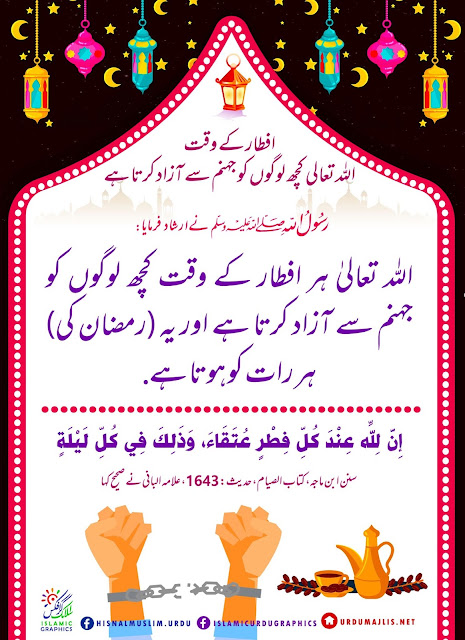 افطار کے وقت
اللہ تعالیٰ کچھ لوگوں کو جہنم سے آزاد کرتا ہے
رسول اللہ ﷺ نے ارشاد فرمایا:
اللہ تعالیٰ ہر افطار کے وقت کچھ لوگوں کو
جہنم سے آزاد کرتا ہے اور یہ (رمضان کی)
ہر رات کو ہوتا ہے۔
إِنَّ لِلَّهِ عِنْدَ كُلِّ فِطْرٍ عُتَقَاءَ، وَذَلِكَ فِي كُلِّ لَيْلَةٍ
سنن ابن ماجہ، کتاب الصیام، حدیث: 1643، علامہ البانی نے صحیح کہا
اسلامک گرافکس
ISLAMIC
GRAPHICS
HISNALMUSLIM.URDU
ISLAMICURDUGRAPHICS
URDUMAJLIS.NET